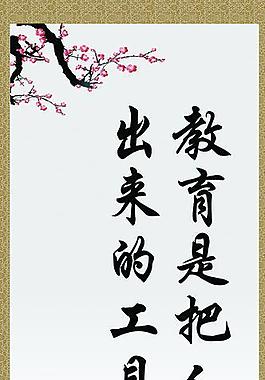 教育是把
出来的工